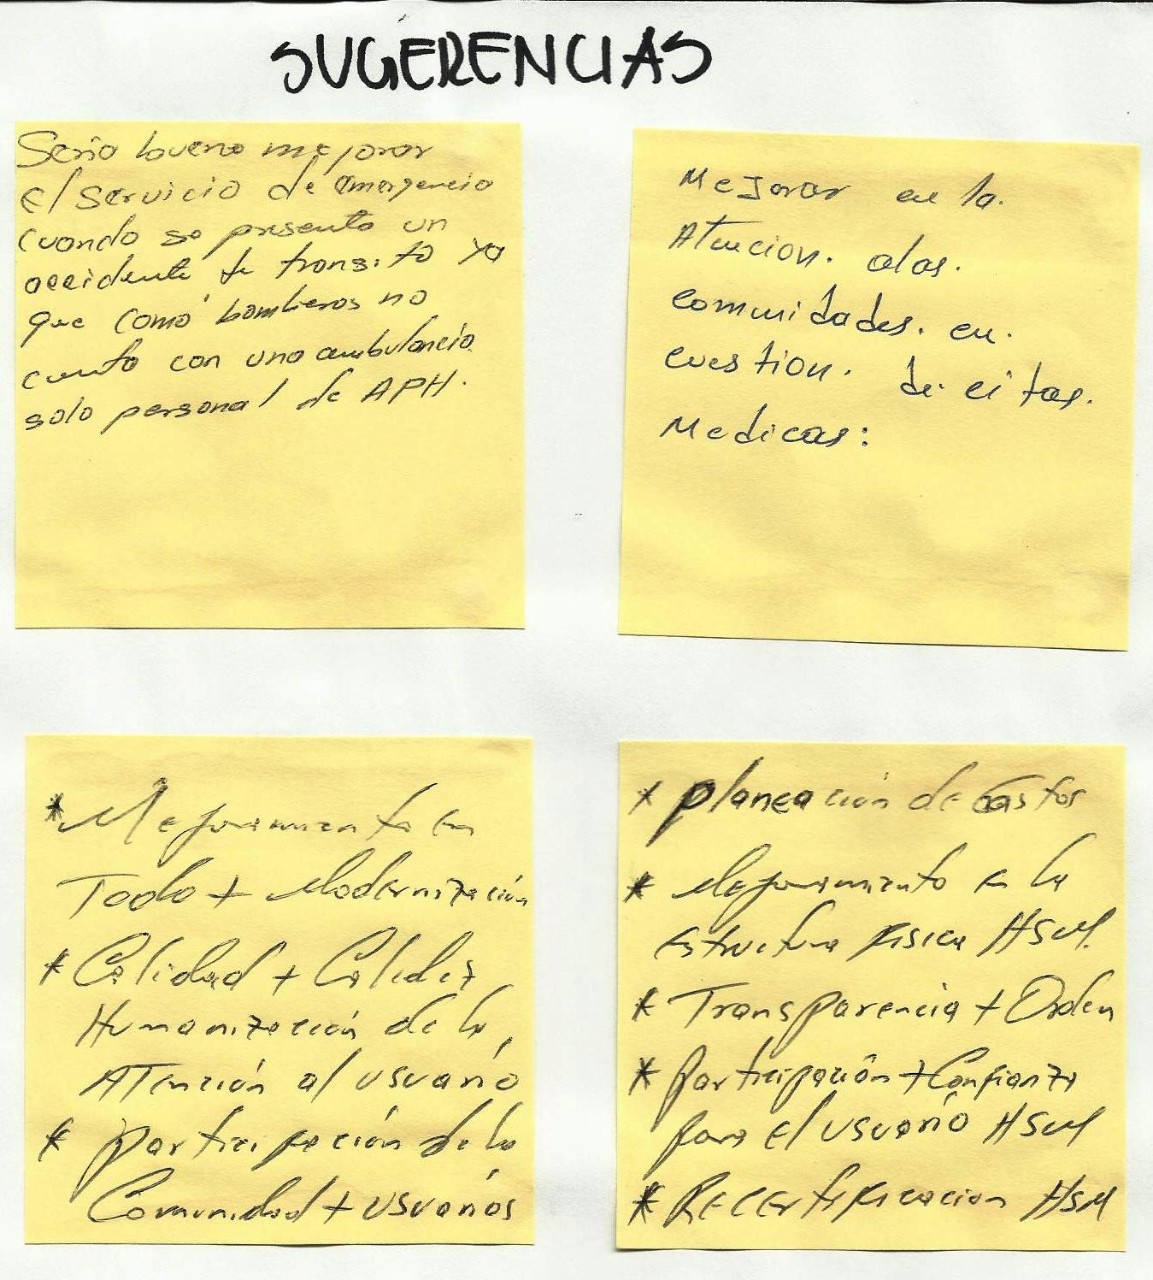 SUGERENCIAS
Seria bueno mejorar
el servicio de emergencia
cuando se presenta un
accidente de transito ya
que como bomberos no
cuento con una ambulancia
solo personal de APH.
Mejorar en la.
Atencion. alas.
comunidades. en.
cuestion. de citas.
Medicas:
* Mejoramiento en
Todo + Modernización
* Calidad + Calidez
Humanización de la
ATención al usuario
* participación de la
Comunidad + usuarios
* planeación de Gastos
* Mejoramiento en la
estructura fisica HSM.
* Transparencia + Orden
* participación + Confianza
para el usuario HSM
* Recertificacion HSM